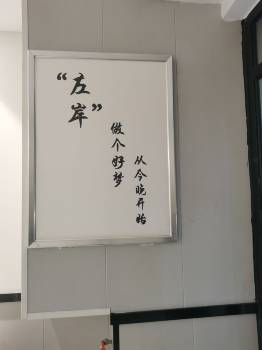 “左岸”
做个好梦
从今晚开始